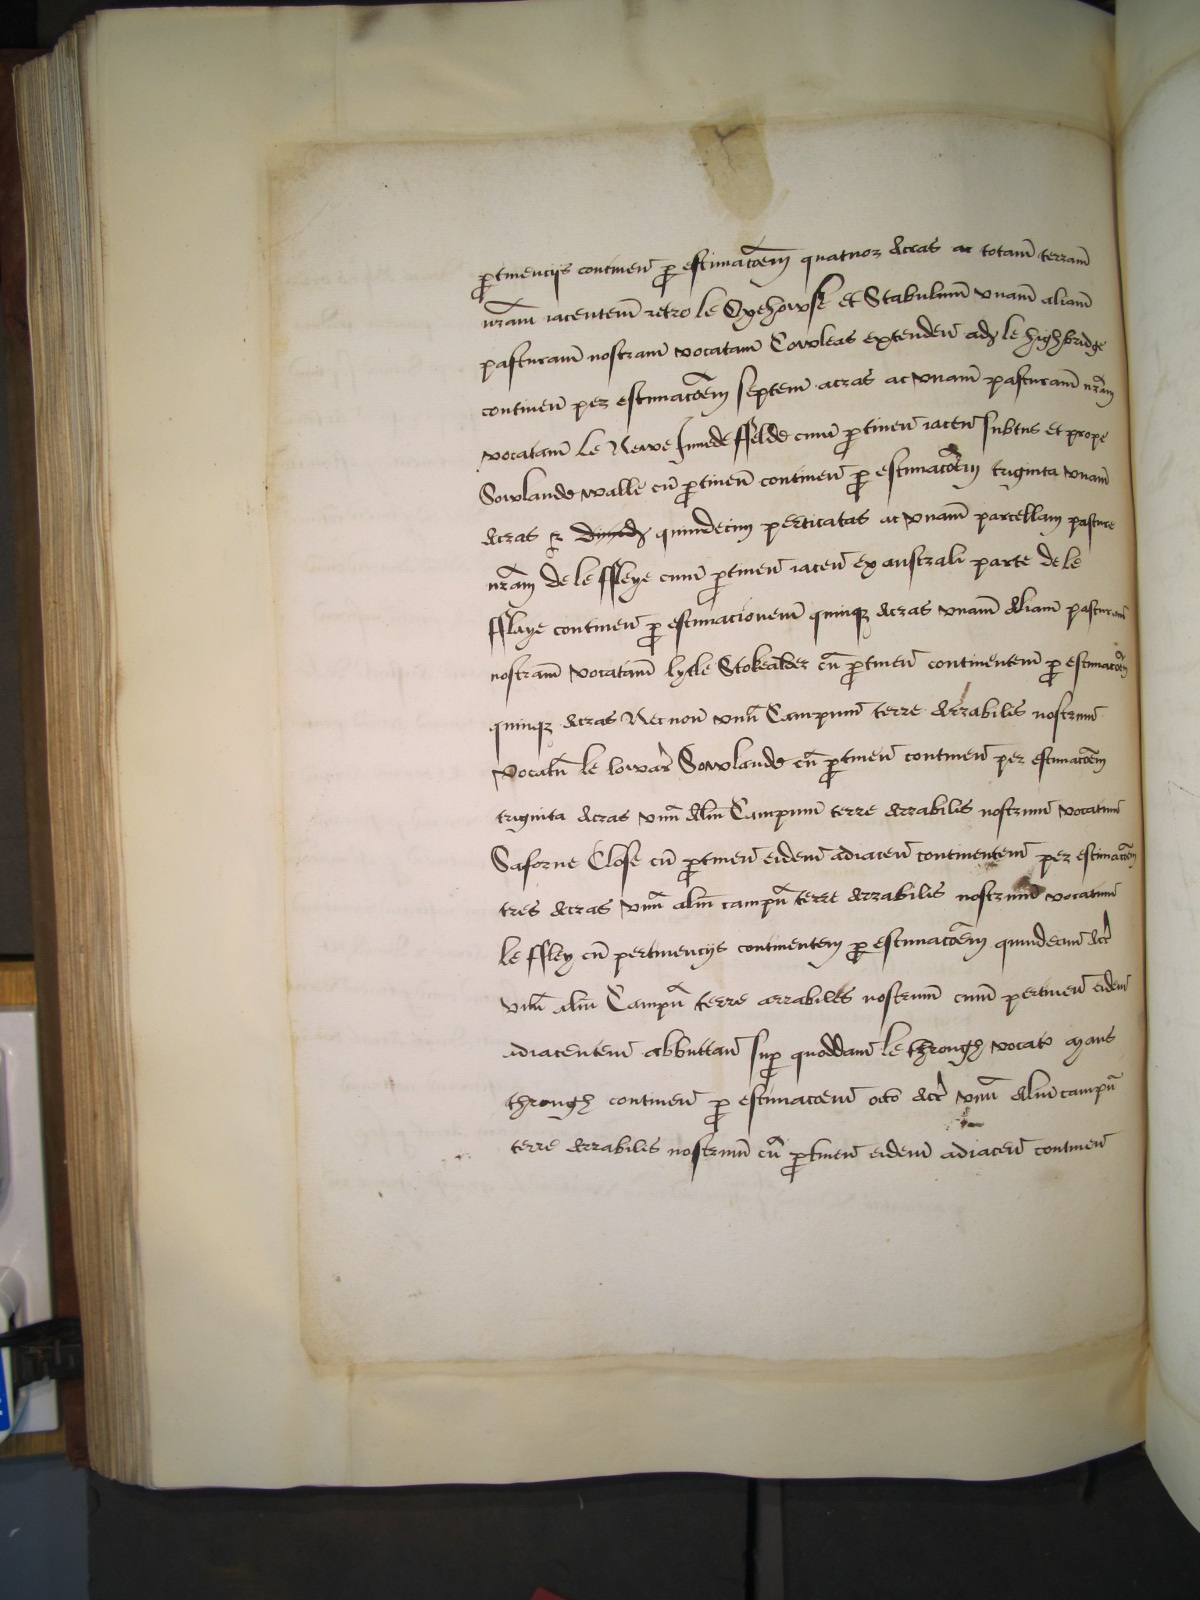 ptinencijs continen̄ p estimacōem quatuor Acras ac totam̄ terram̄
nr̄am iacentem̄ retro le Oxehowse et Stabulum̄ vnam̄ aliam̄
pasturam̄ nostram̄ vocatam̄ Cowleas extenden̄ adꝫ le highbridge
continen̄ per estimacōem septem̄ acras ac vnam̄ pasturam̄ nr̄am
vocatam̄ le Newe ffelde cum̄ ptinen̄ iacen̄ subtus et prope
Sowlande walle cū ptinen̄ continen̄ p estimacōem triginta vnam̄
Acras & dimidꝫ quindecim perticatas ac vnam̄ parcellam pasture
nr̄am de le ffleye cum̄ ptinen̄ iacen̄ ex australi parte de le
fflaye continen̄ p estimacionem̄ quinqꝫ Acras vnam̄ Aliam̄ pasturam̄
nostram̄ vocatam̄ lytle Stokealder cū ptinen̄ continentem̄ p estimacōem
quinqꝫ Acras Necnon̄ vnū Campum̄ terre Arrabilis nostrum̄
vocatū le lowar Sowlande cū ptinen̄ continen̄ per estimacōem
triginta Acras vnū Aliū Campum̄ terre Arrabilis nostrum̄ vocatum̄
Saforne Close cū ptinen̄ eidem̄ adiacen̄ continentem̄ per estimacōem
tres Acras vnū aliū campū terre Arrabilis nostrum̄ vocatum̄
le ffley cū pertinencijs continentem p estimacōem quindecim Acr
vnū aliū Campū terre arrabiles nostrum̄ cum̄ pertinen̄ eidem̄
adiacentem̄ abbuttan̄ sup quoddam̄ le through vocato Mans
through continen̄ p estimacōem octo Acr vnū Aliū campū
terre Arrabilis nostrum̄ cū ptinen̄ eidem̄ adiacen̄ continen̄